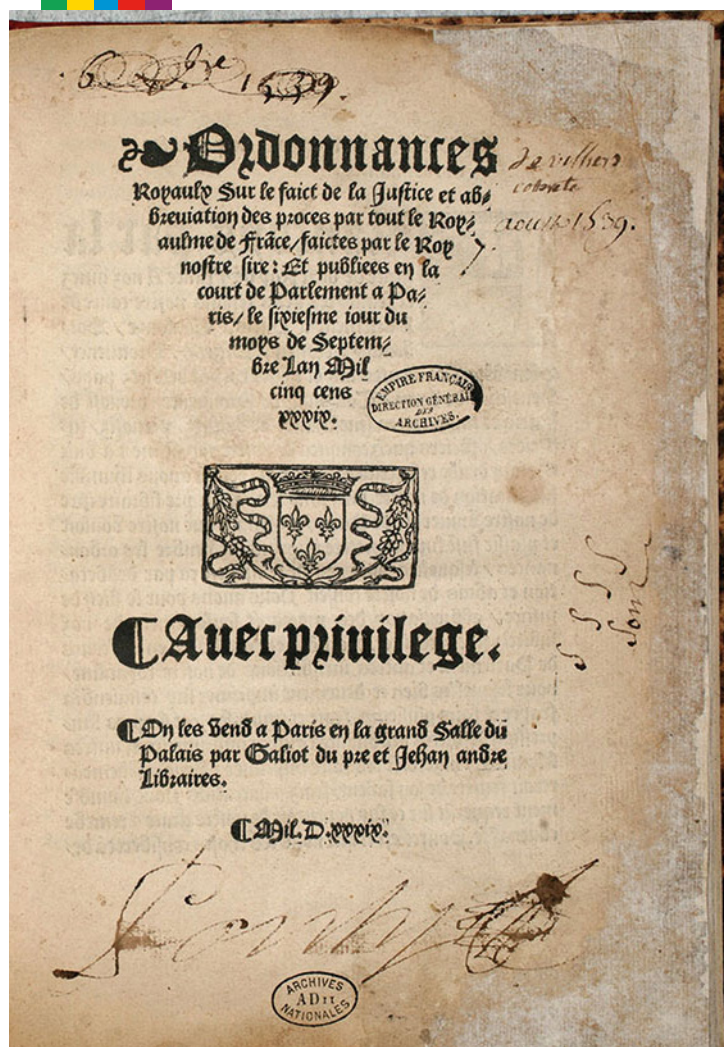 6 7bre 1539.
Ordonnances
Royaulx Sur le faict de la Justice et ab⸗
breuiation des proces par tout le Roy⸗
aulme de Frãce/faictes par le Roy
nostre sire: Et publiees en la
court de Parlement a Pa⸗
ris/ le sixiesme iour du
moys de Septem⸗
bre Lan Mil
cinq cens
xxxix.
de villers
coterets
aoust 1539.
EMPIRE FRANÇAIS
DIRECTION GÉNÉRALE
DES
ARCHIVES.
¶Auec priuilege.
¶On les vend a Paris en la grand Salle du
Palais par Galiot du pre et Jehan andre
Libraires.
¶Mil. D. xxxix.
ARCHIVES
AD II
NATIONALES